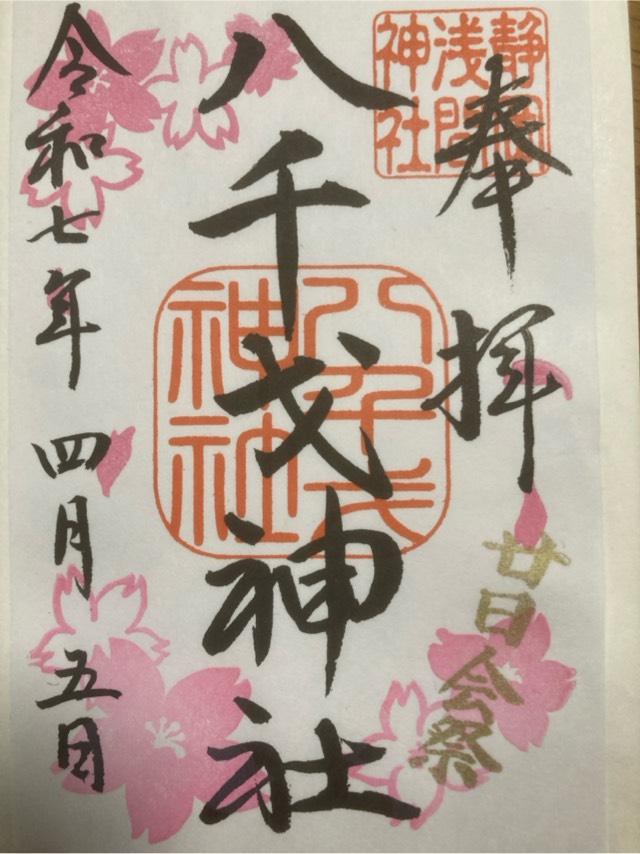 奉拝
静岡
浅間
神社
廿日会祭
八千戈神社
八千戈
神社
令和七年 四月 五日